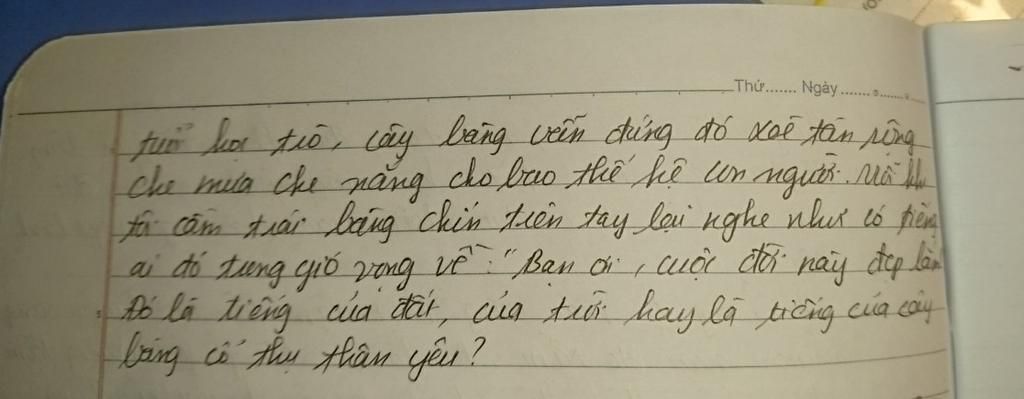 Thứ....... Ngày ....................
tuổi học trò, cây bàng vẫn đứng đó xoè tán rộng
che mưa che nắng cho bao thế hệ con người. Mỗi khi
tôi cầm trái bàng chín trên tay lại nghe như có tiếng
ai đó trong gió vọng về: "Bạn ơi, cuộc đời này đẹp lắm
Đó là tiếng của đất, của trời hay là tiếng của cây
bàng cổ thụ thân yêu?